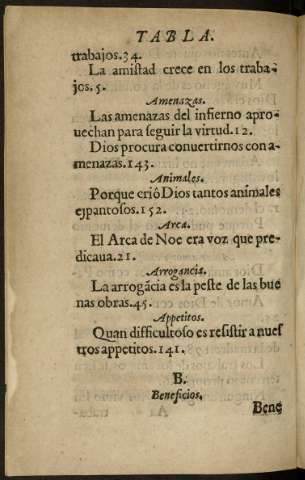 TABLA.
trabajos.34.
La amistad crece en los traba-
jos.5.
Amenazas.
Las amenazas del infierno apro-
uechan para seguir la virtud.12.
Dios procura conuertirnos con a-
menazas.143.
Animales.
Porque criô Dios tantos animales
espantosos.152.
Arca.
El Arca de Noe era voz que pre-
dicaua.21.
Arrogancia.
La arrogãcia es la peste de las bue
nas obras.45.
Appetitos.
Quan difficultoso es resistir a nues
tros appetitos.141.
B.
Beneficios.
Bene